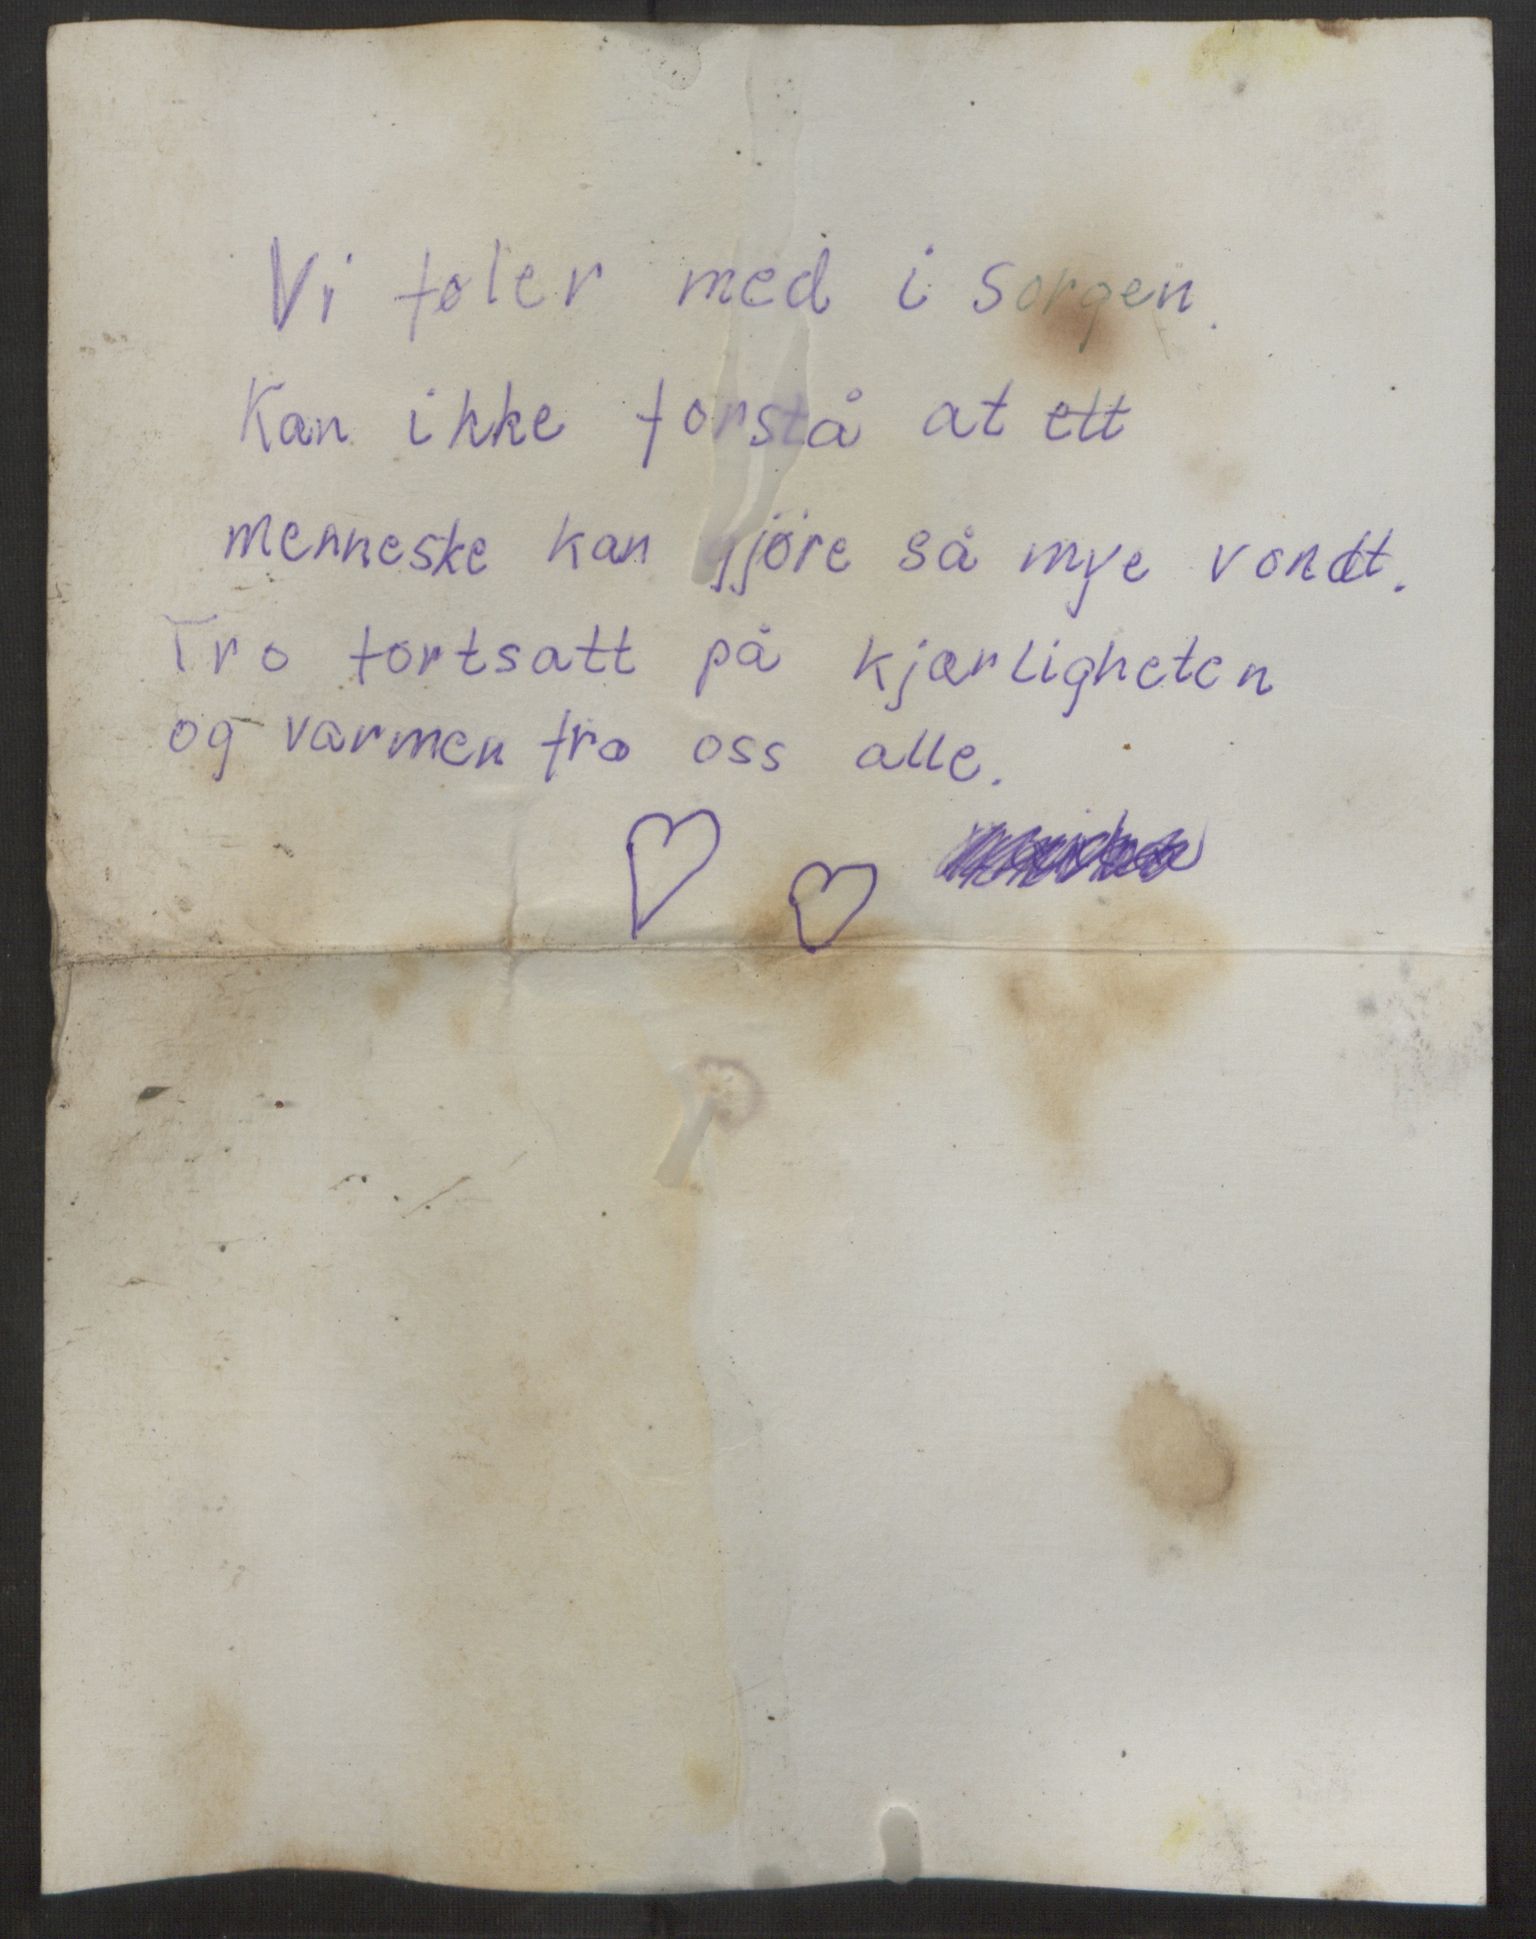 Vi føler med i sorgen.
Kan ikke forstå at ett
menneske kan gjøre så mye vondt.
Tro fortsatt på kjærligheten
og varmen fra oss alle.